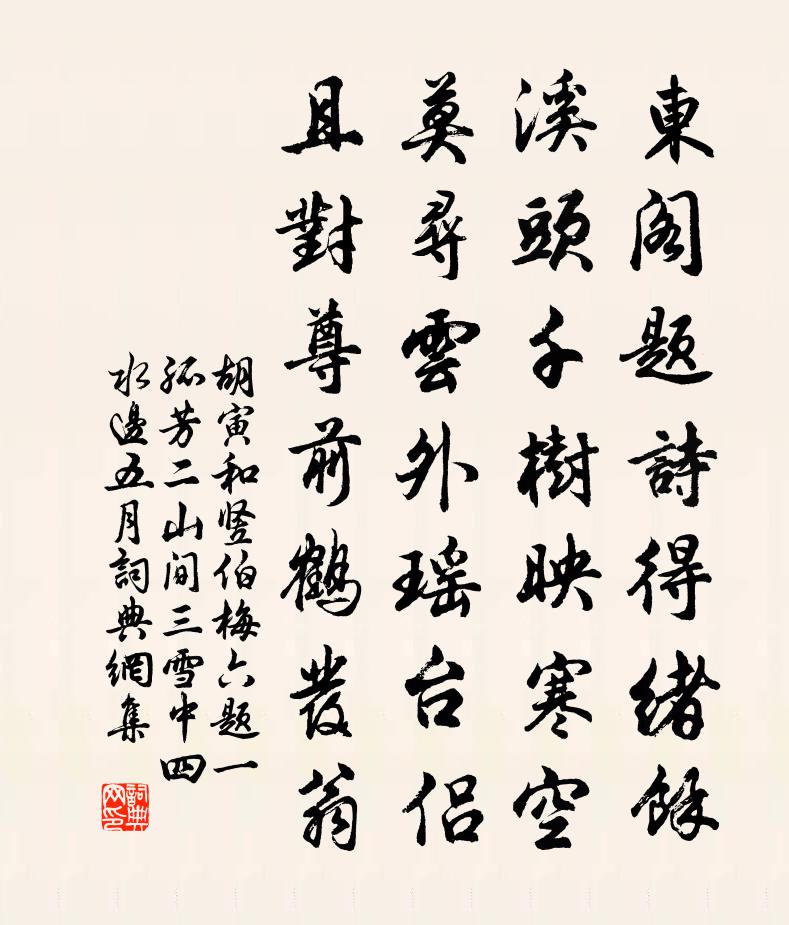 東阁题詩得緒餘
溪頭千樹映寒空
莫尋雲外瑶台侣
且對尊前鶴發翁
胡寅和竖伯梅六题一
孤芳二山间三雪中四
水邊五月詞典網集
詞典网印